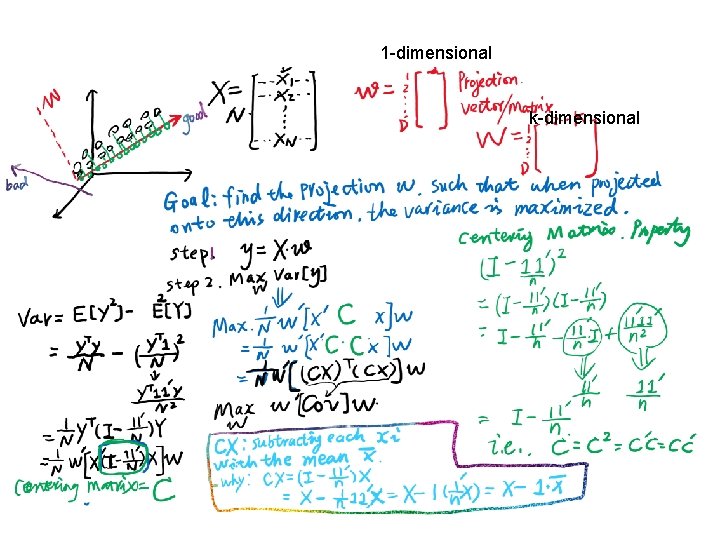 1-dimensional
w = 1 2 : D [ ] Projection vector/matrix
k-dimensional
W = 1 2 : D [ ]
X = N [ x1 x2 ⋮ xN ]
w
good
bad
Goal: find the projection w. such that when projected
onto this direction, the variance is maximized.
step1 y = X·w
step 2. Max w Var[y]
Var = E[y²] - E²[Y]
= yᵀy/N - (yᵀ1/N)²
yᵀ11'y/N²
= 1/N yᵀ(I - 11'/n)Y
= 1/N w'[x'(I-11'/n)x]w
Centering matrix = C
Max. 1/N w'[x' C x]w
= 1/N w'[x'C·C x]w
= 1/N w'[(CX)ᵀ(CX)]w
Max w w'[Cov]w.
CX: subtracting each xi
with the mean x̄.
why: CX = (I - 11'/n)X
= X - 1/n 11'X = X - 1(1/n 1'X) = X - 1·x̄
Centering Matrix. Property
(I - 11'/n)²
= (I-11'/n)(I-11'/n)
= I - 11'/n - 11'/n·I + 11'11'/n²
11'/n 11'/n
= I - 11'/n
i.e., C = C² = C'C = CC'